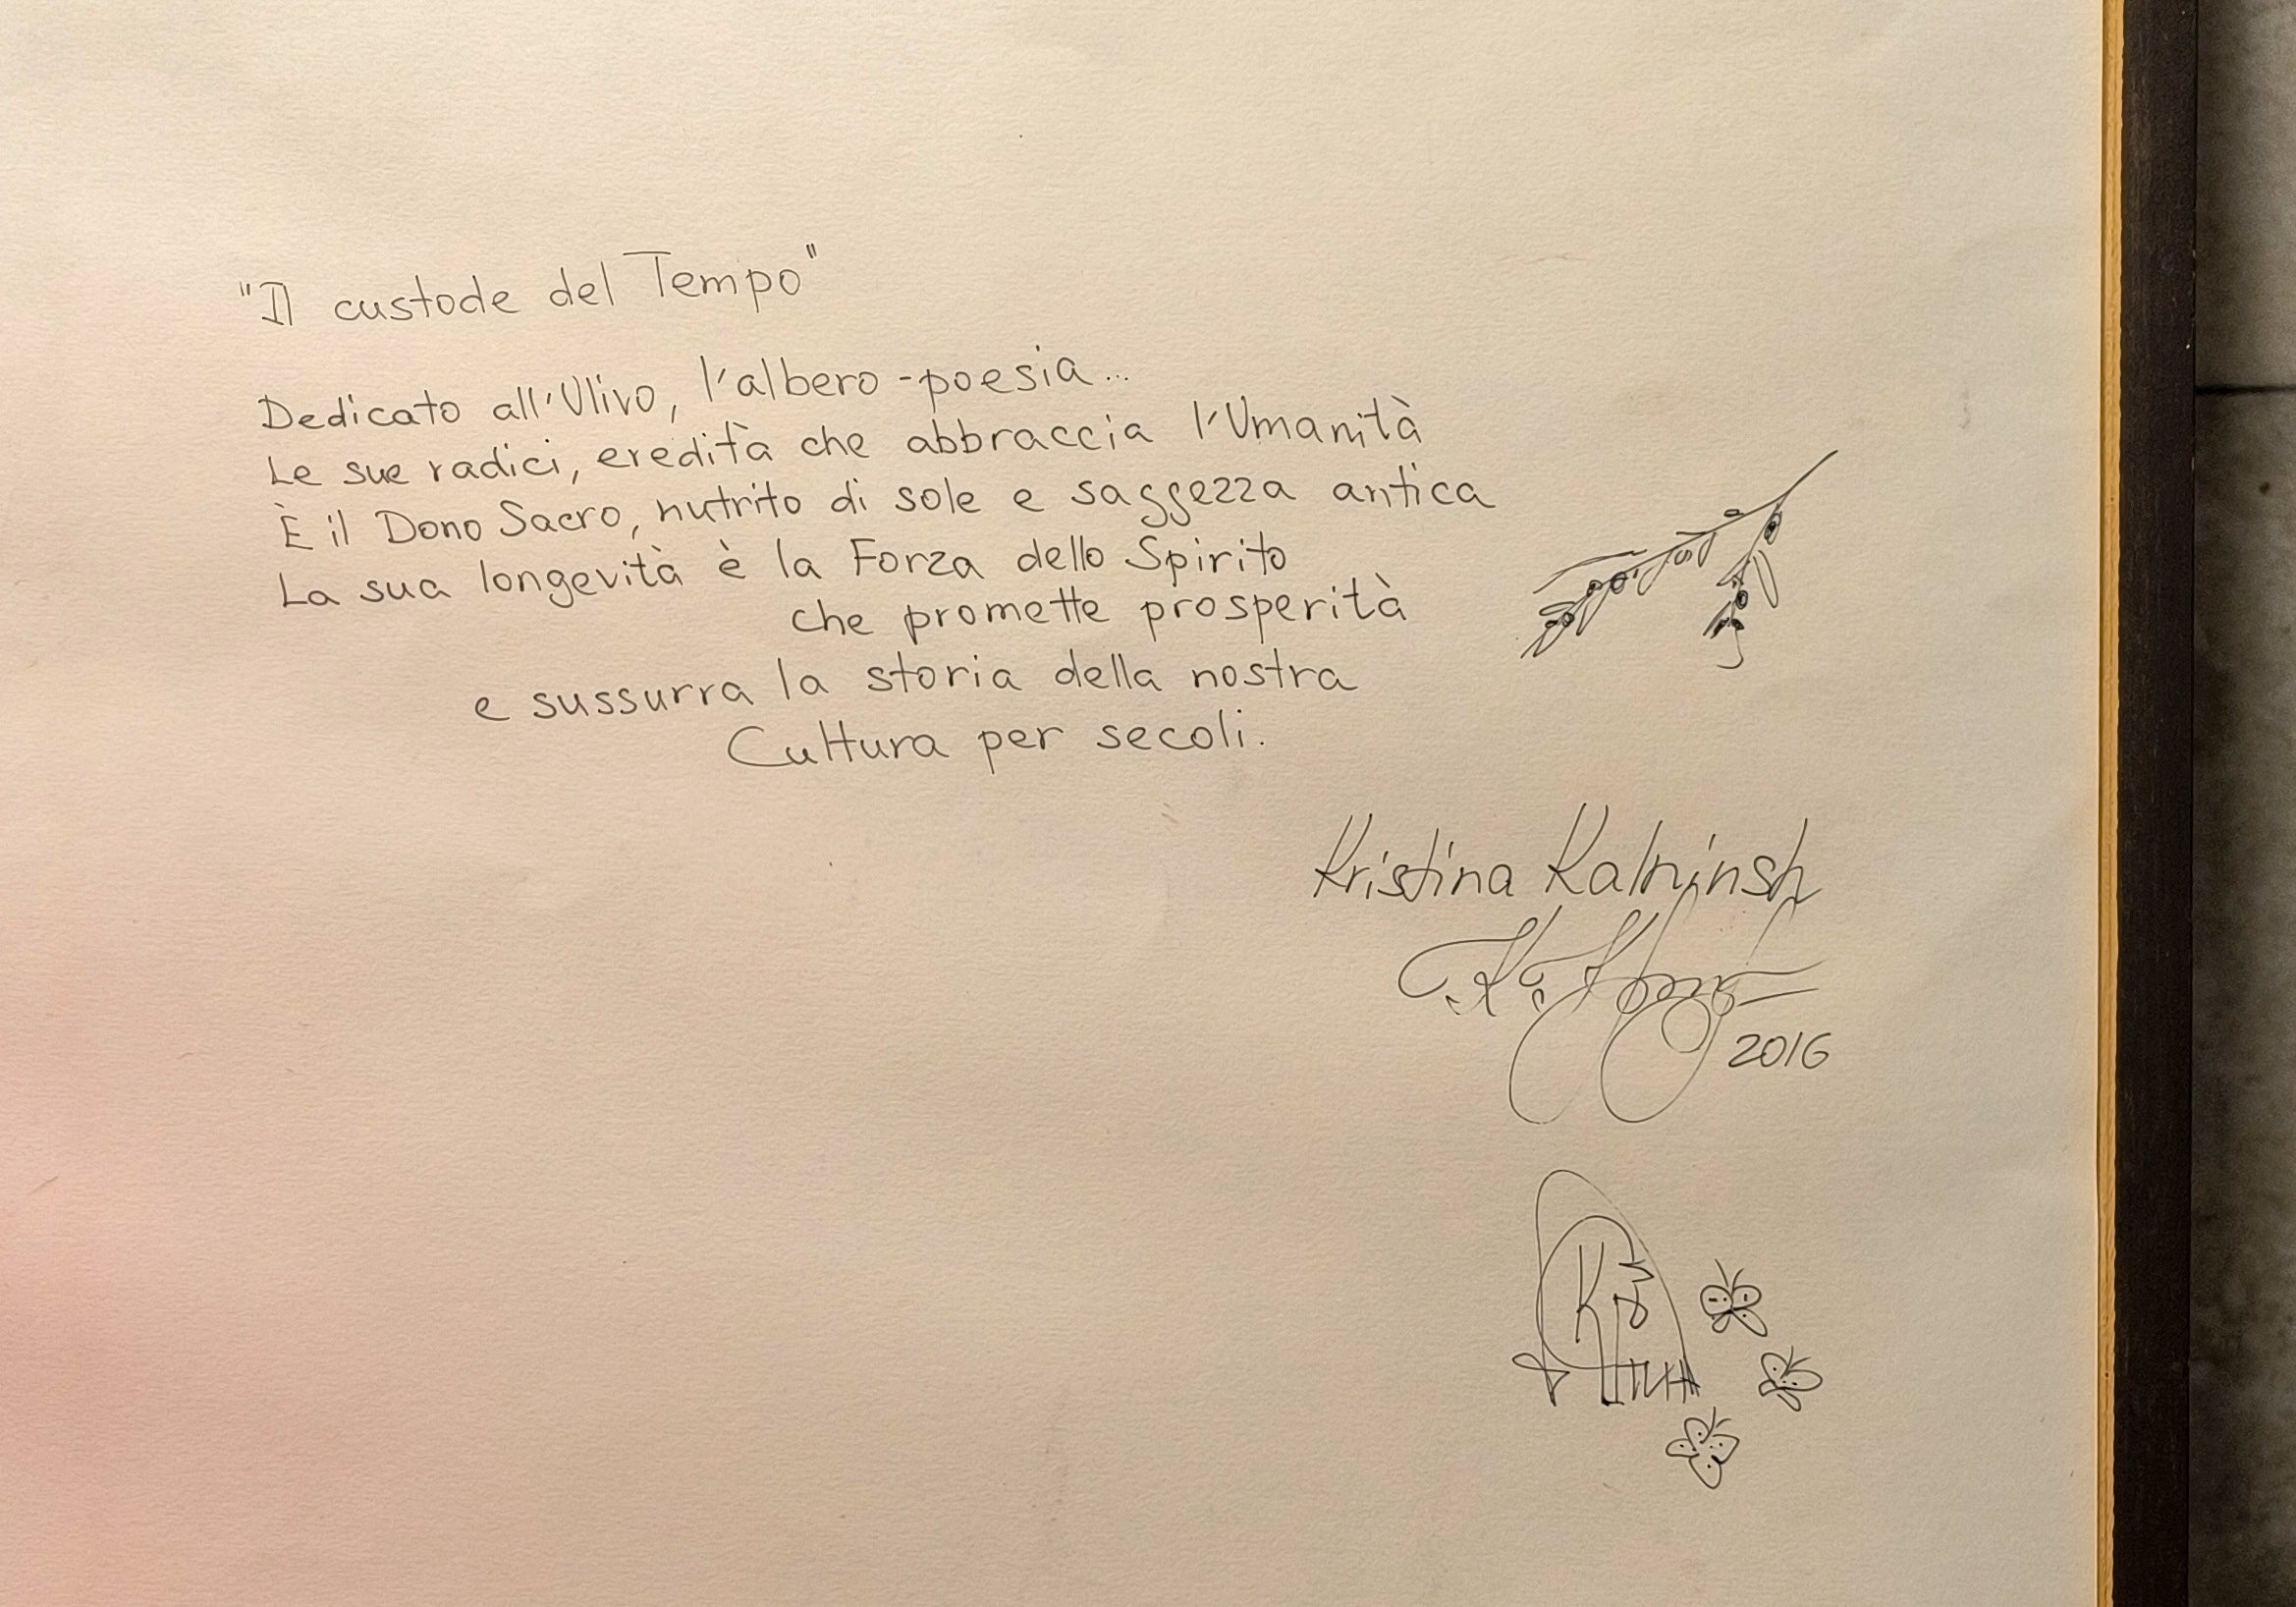 "Il custode del Tempo"
Dedicato all'Ulivo, l'albero-poesia...
Le sue radici, eredità che abbraccia l'Umanità
È il Dono Sacro, nutrito di sole e saggezza antica
La sua longevità è la Forza dello Spirito
che promette prosperità
e sussurra la storia della nostra
Cultura per secoli.
Kristina Kalninsh
2016